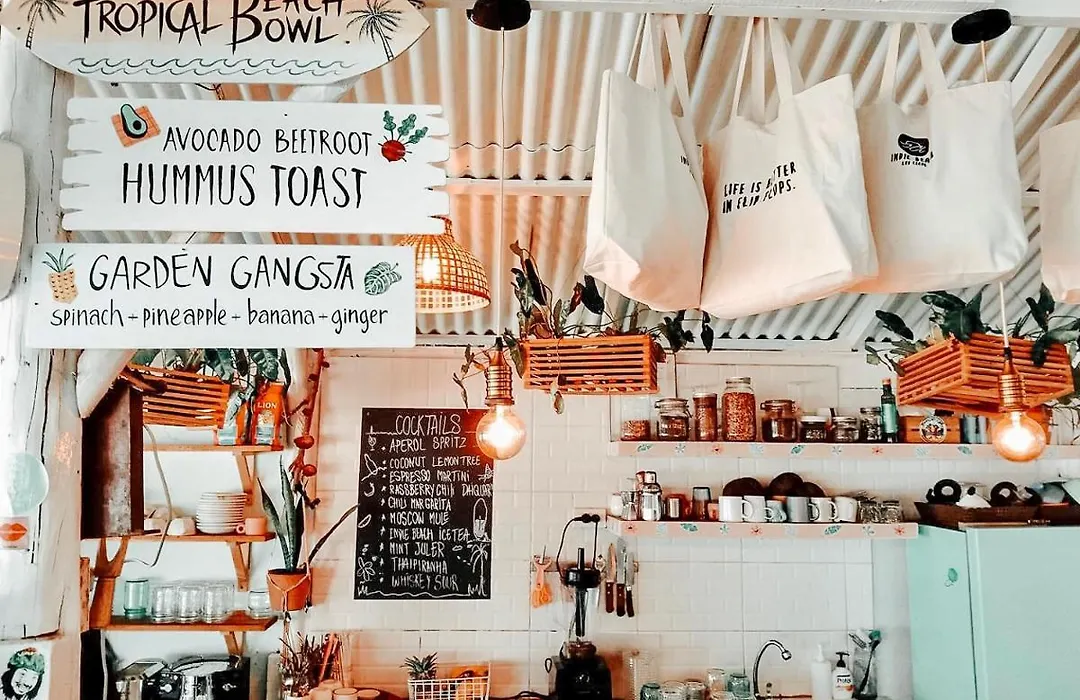 TROPICAL BEACH BOWL
AVOCADO BEETROOT
HUMMUS TOAST
GARDEN GANGSTA
spinach + pineapple + banana + ginger
LIFE IS BETTER
IN FLIP FLOPS.
INDIE BEACH
LION
COCKTAILS
APEROL SPRITZ
COCONUT LEMONTREE
ESPRESSO MARTINI
RASSBERRY CHILI DAIQUIRI
CHILI MARGARITA
MOSCOW MULE
INDIE BEACH ICETEA
MINT JULEP
THAIPIRANHA
WHISKEY SOUR